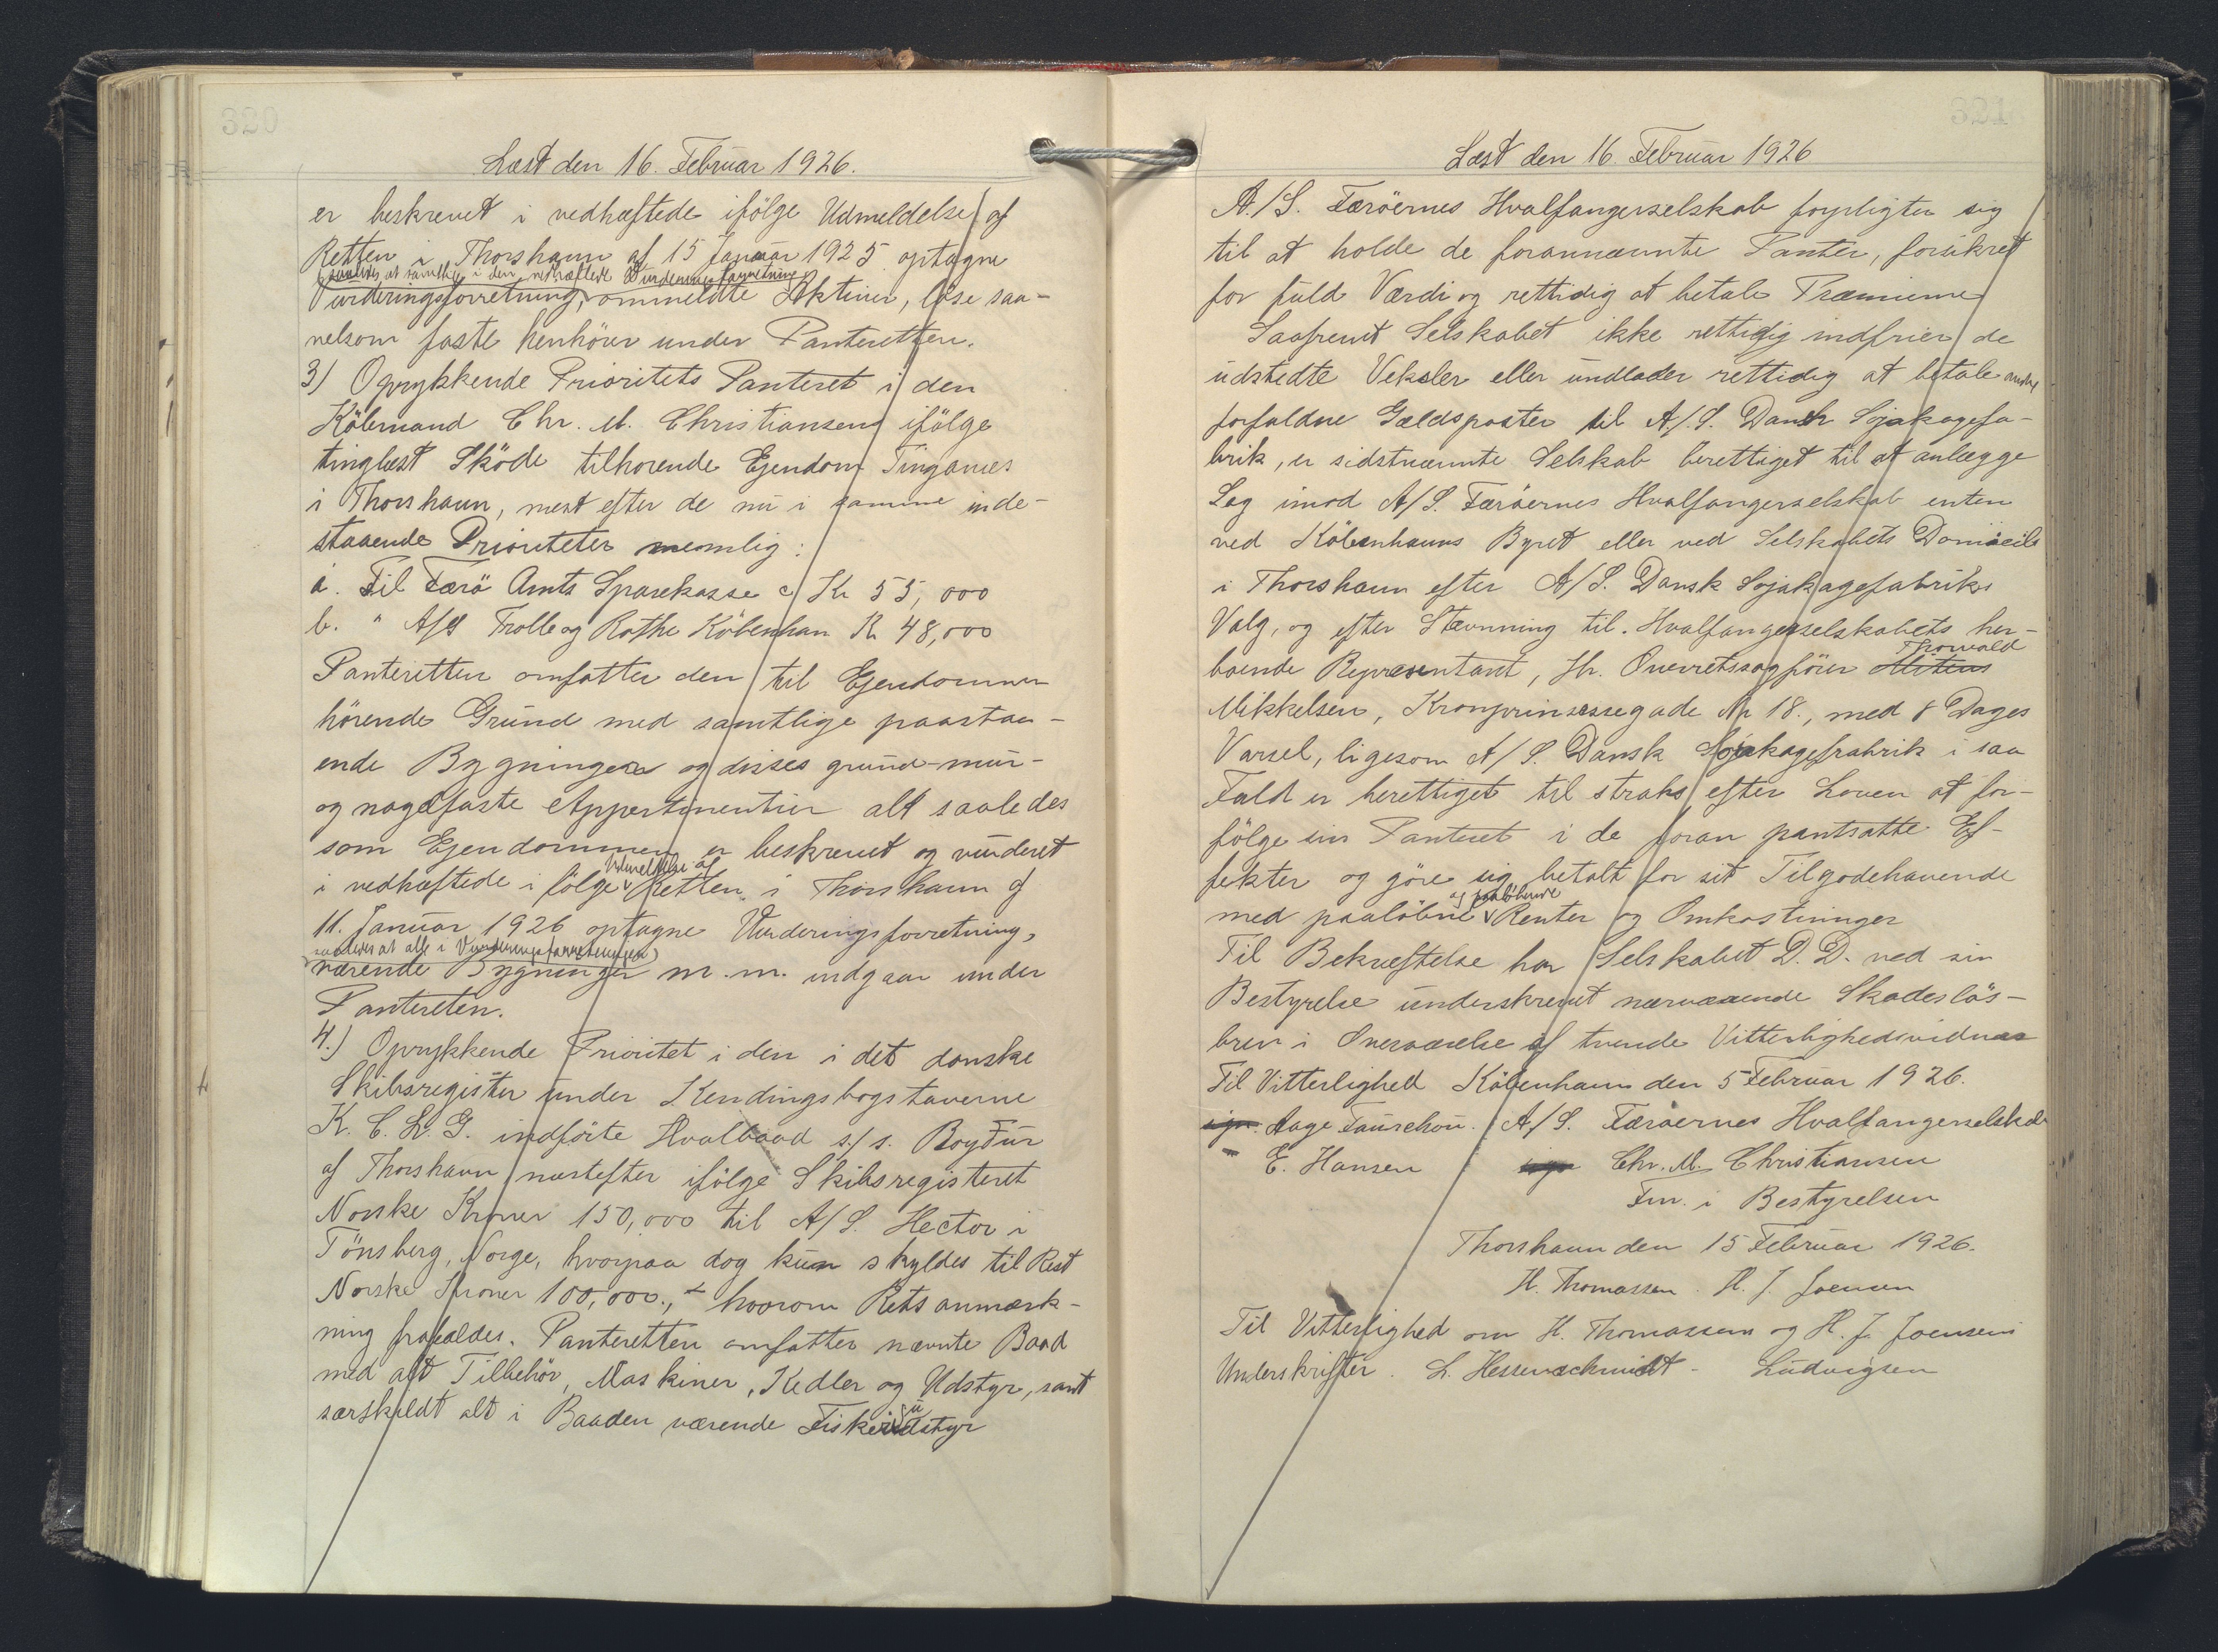 320
Læst den 16. Februar 1926.
er beskrevet i vedhæftede ifölge Udmeldelse af
Retten i Thorshavn af 15 Januar 1925 optagne
(saaledes at samtlige i den vedhæftede Vurderingsforretning
Vurderingsforretning, ommeldte Aktiver, löse saa-
velsom faste henhörer under Panteretten.
3) Oprykkende Prioritets Panteret i den
Köbmand Chr. M. Christiansen ifölge
tinglæst Sköde tilhorende Ejendom Tinganes
i Thorshavn, næst efter de nu i samme inde-
staaende Prioriteter nemlig:
a. Til Færö Amts Sparekasse c/ Kr 55,000
b. " A/S Trolle og Rothe Köbenhavn Kr 48,000
Panteretten omfatter den til Ejendommen
hörende Grund med samtlige paastaa-
ende Bygninger og disses grund-mur-
og nagelfaste Appertinentier alt saaledes
som Ejendommen er beskrevet og vurderet
Udmeldelse af
i vedhæftede i fölge Retten i Thorshavn af
11. Januar 1926 optagne Vurderingsforretning,
saaledes at alle i Vurderingsforretningen)
værende Bygninger m.m. indgaar under
Panteretten.
4.) Oprykkende Prioritet i den i det danske
Skibsregister under Kendingsbogstaverne
K. C. L. G. indförte Hvalbaad s/s. Boyður
af Thorshavn næstefter ifölge Skibsregisteret
Norske Kroner 150,000 til A/S. Hector i
Tönsberg, Norge, hvorpaa dog kun skyldes til Rest
Norske Kroner 100,000., - hvorom Retsanmærk-
ning frafaldes. Panteretten omfatter nævnte Baad
med alt Tilbehör, Maskiner, Kedler og Udstyr, samt
særskildt alt i Baaden værende Fiskeriudstyr
321
Læst den 16. Februar 1926
A./S. Færöernes Hvalfangerselskab forpligter sig
til at holde de forannævnte Panter, forsikret
for fuld Værdi og rettidig at betale Præmierne
Saafremt Selskabet ikke rettidig indfrier de
udstedte Veksler eller undlader rettidig at betale andre
forfaldne Gældsposter til A/S. Dansk Sojakagefa-
brik, er sidstnævnte Selskab berettiget til at anlægge
Sag imod A/S. Færöernes Hvalfangerselskab enten
ved Köbenhavns Byret eller ved Selskabets Domicil
i Thorshavn efter A/S. Dansk Sojakagefabriks
Valg, og efter Stævnning til. Hvalfangerselskabets her-
Thorvald
boende Repræsentant, Hr. Overretssagförer
Mikkelsen, Kronprinsessegade Nr 18., med 8 Dages
Varsel, ligesom A/S. Dansk Sojakagefrabrik i saa
Fald er berettiget til straks efter Loven at for-
fölge sin Panteret i de foran pantsatte Ef-
fekter og göre sig betalt for sit Tilgodehavende
og paalöbende
med paalöbne Renter og Omkostninger
Til Bekræftelse har Selskabet D. D. ved sin
Bestyrelse underskrevet nærværende Skadeslös-
brev i Overværelse af tvende Vitterlighedsvidner
Til Vitterlighed Köbenhavn den 5 Februar 1926.
sign. Aage Fauschou. A/S. Færöernes Hvalfangerselskab
E. Hansen sign Chr. M. Christiansen
Fm. i Bestyrelsen
Thorshavn den 15 Februar 1926.
H. Thomassen. H. J. Joensen
Til Vitterlighed om H. Thomassen og H. J. Joensens
Underskrifter. L. Hessenschmidt - Ludvigsen